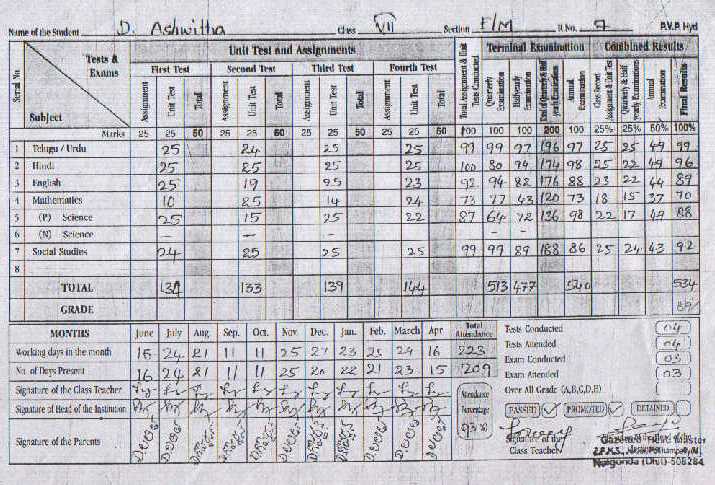 Name of the Student D. Ashwitha Class VII Section E/M R No. 7 P.V.P. Hyd
Serial No Tests & Exams Subject Unit Test and Assignments Terminal Examination Combined Results
First Test Second Test Third Test Fourth Test Total Assignment & Unit Tests Conducted Quarterly Examination Half-yearly Examination Total of Quarterly & Half yearly Examination Annual Examination Class Record Assignment & Unit Test Quarterly & Half yearly Examinations Annual Examination Final Results
Assignment Unit Test Total Assignment Unit Test Total Assignment Unit Test Total Assignment Unit Test Total
Marks 25 25 50 25 25 50 25 25 50 25 25 50 100 100 100 200 100 25% 25% 50% 100%
1 Telugu / Urdu 25 24 25 25 99 99 97 196 97 25 25 49 99
2 Hindi 25 25 25 25 100 80 94 174 98 25 22 49 96
3 English 25 19 25 23 92 94 82 176 88 23 22 44 89
4 Mathematics 10 25 14 24 73 77 43 120 73 18 15 37 70
5 (P) Science 25 15 25 22 87 64 72 136 98 22 17 49 88
6 (N) Science - - - -
7 Social Studies 24 25 25 25 99 99 89 188 86 25 24 43 92
8
TOTAL 134 133 139 144 513 477 540 534
GRADE 89
MONTHS June July Aug. Sep. Oct. Nov. Dec. Jan. Feb. March Apr. Total Attendance
Working days in the month 15 24 21 11 11 25 27 23 25 24 16 223
No. of Days Present 16 24 21 11 11 25 20 22 21 23 15 209
Signature of the Class Teacher
Signature of Head of the Institution
Signature of the Parents
Attendance Percentage 93%
Tests Conducted 04
Tests Attended 04
Exam Conducted 03
Exam Attended 03
Over All Grade (A,B,C,D,E)
PASSED PROMOTED DETAINED
Signature of the Class Teacher
Gazetted Head Master
Z.P.H.S.,
Nalgonda (Dist)-508284